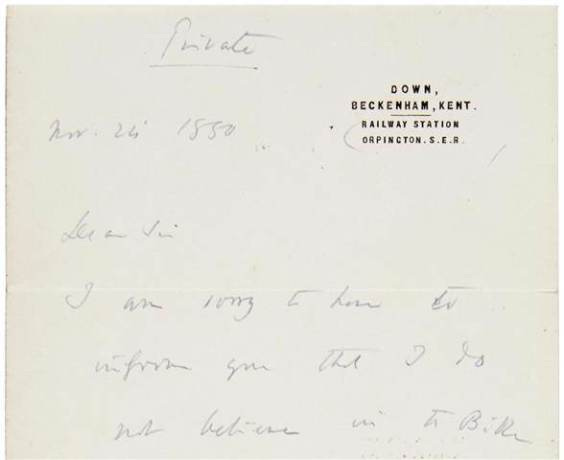 Private
DOWN,
BECKENHAM, KENT.
RAILWAY STATION
ORPINGTON. S.E.R.
Nov. 24 1880
Dear Sir
I am sorry to have to
inform you that I do
not believe in the Bible